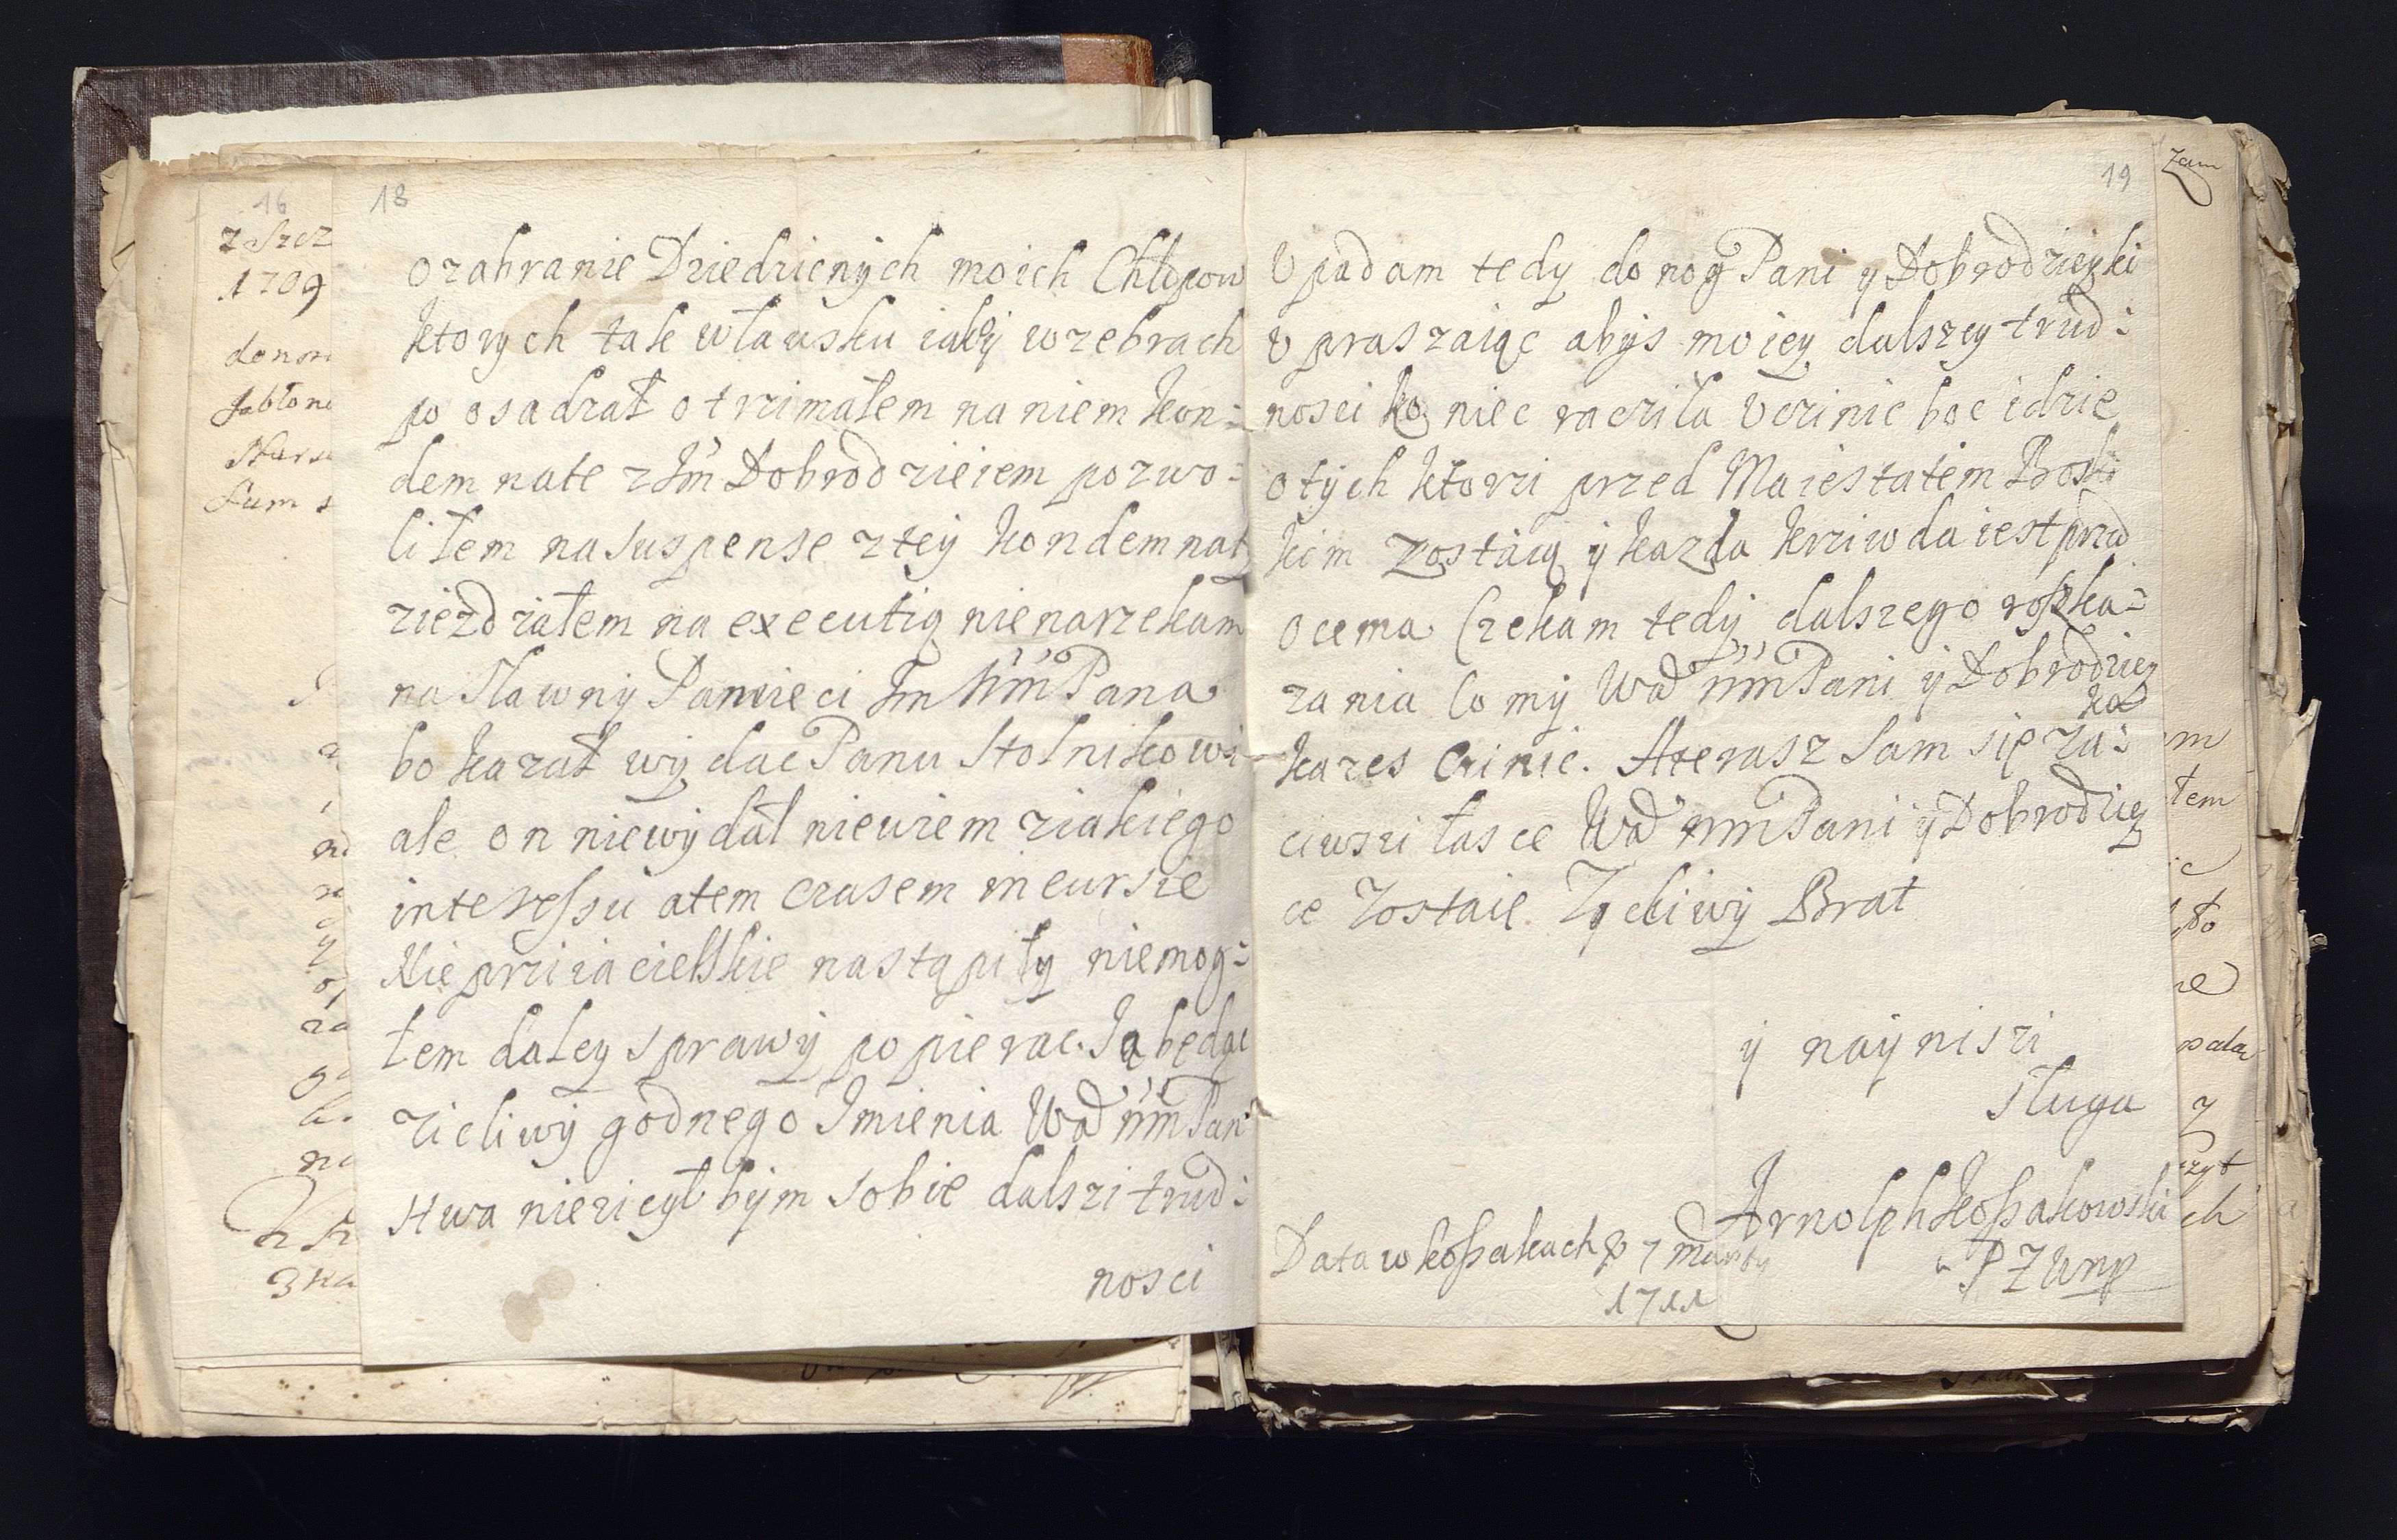 18
o zabranie Dziedzicnych moich Chłopow
ktorych tak w Łausku iak y w zebrach
po osadzał otrzimałem na niem kon:
demnate z Jm Dobrodzieiem pozwo:
liłem na suspense z tey kondemnat
ziezdziałem na executią nie narzekam
na Sławny Pamieci Jm NM Pana
bo kazał wydac Panu Stolnikowi
ale on niewydał niewiem ziakiego
interessu atem czasem incursie
Nieprziiacielskie nastąpiły niemog:
łem daley sprawy popierac. Ja będąc
zicliwy godnego Imienia Wad nm Pan
stwa nieziczył bym sobie dalszi trud:
nosci
19
Upadam tedy do nog Pani y Dobrodzieyki
Upraszaiąc abys moiey dalszey trud:
nosci koniec raczila Uczinic boc idzie
o tych ktorzi przed Maiestatem Bosk
kim zostaią y kazda krziwda iest przed
ocema Czekam tedy dalszego rosska:
zania Co my Wad nm Pani y Dobrodziey
ka
kazes Czinic. A teraz Sam się za:
ciwszi łasce Wad nm Pani y Dobrodziey
ce zostaie Zycliwy Brat
y nayniszi
Sługa
Arnolph Kossakowski
P Z Wnp
Data w Kossakach 7 Marty
1711
16
z Szcz
1709